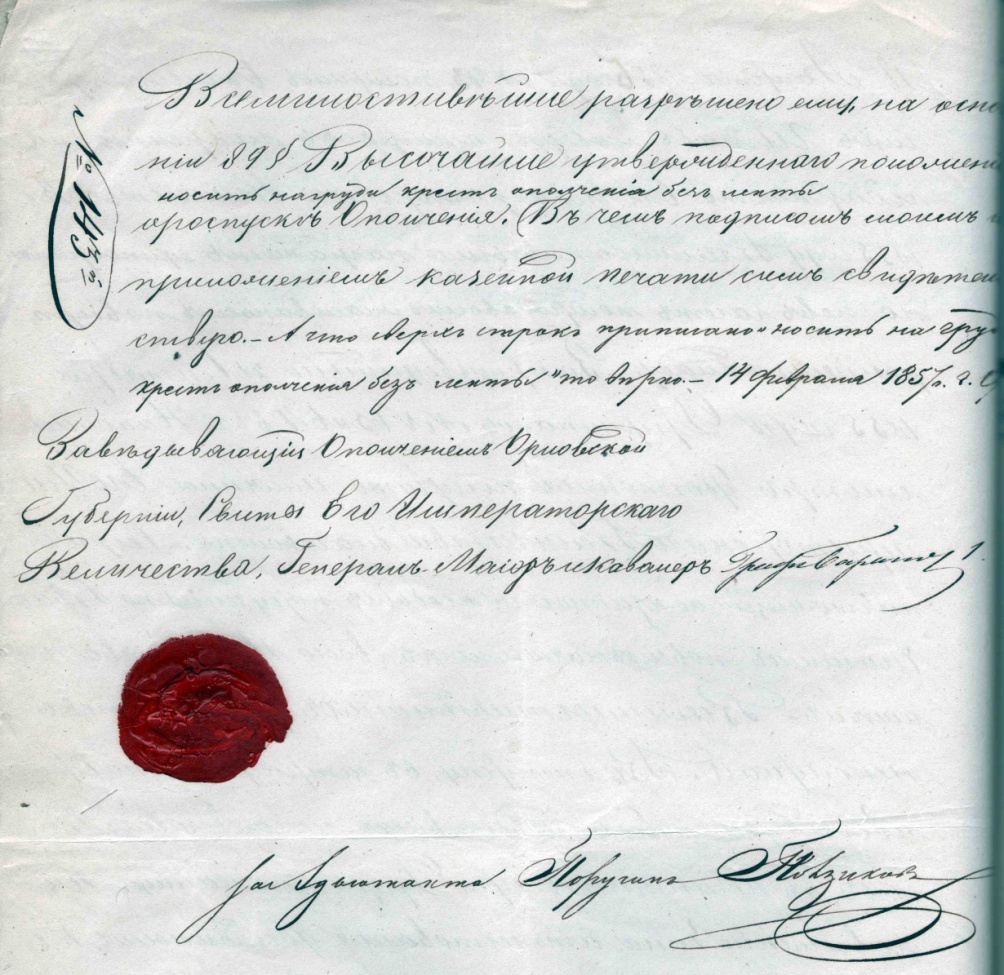 № 143.
Всемилостивѣйше разрѣшено ему, на осно
ніи 89 § Высочайше утвержденнаго положені
носить на груди крестъ ополченія безъ ленты
о роспускѣ Ополченія. Въ чемъ подписомъ моимъ
приложеніемъ казенной печати симъ свидѣтель
ствую. – А что сверхъ строкъ приписано „носить на груд
крестъ ополченія безъ ленты" то вѣрно. – 14 февраля 1857 г.
Завѣдывающій Ополченіемъ Орловской
Губерніи, Свиты Его Императорскаго
Величества, Генералъ-Маіоръ и Кавалеръ Графъ
За Адъютанта Поручикъ